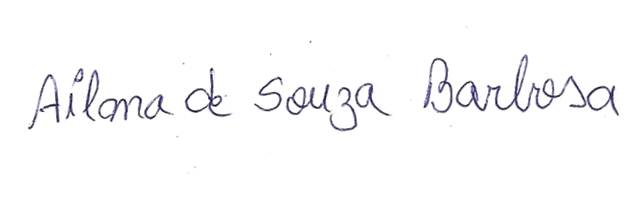 Ailma de Souza Barbosa